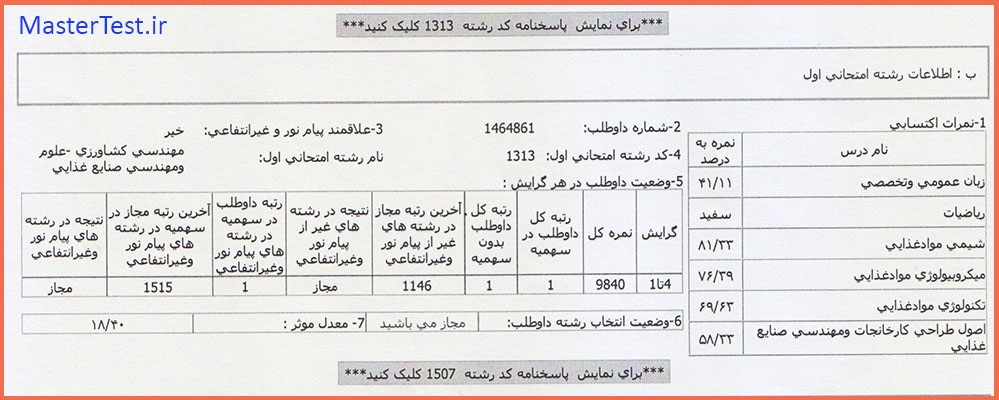 MasterTest.ir
***براي نمايش پاسخنامه كد رشته 1313 كليک كنيد***
ب : اطلاعات رشته امتحاني اول
1-نمرات اكتسابي
نام درس
نمره به درصد
زبان عمومي وتخصصي ۴۱/۱۱
رياضيات سفيد
شيمي موادغذايي ۸۱/۳۳
ميكروبيولوژي موادغذايي ۷۶/۳۹
تكنولوژي موادغذايي ۶۹/۶۳
اصول طراحي كارخانجات ومهندسي صنايع
غذايي ۵۸/۳۳
2-شماره داوطلب: 1464861
3-علاقمند پيام نور و غيرانتفاعي: خير
4-كد رشته امتحاني اول: 1313
نام رشته امتحاني اول: مهندسي كشاورزي -علوم
ومهندسي صنايع غذايي
5-وضعيت داوطلب در هر گرايش :
گرايش
نمره كل
رتبه كل
داوطلب در
سهميه
رتبه كل
داوطلب
بدون
سهميه
آخرين رتبه مجاز
در رشته هاي
غير از پيام نور
وغيرانتفاعي
نتيجه در رشته
هاي غير از
پيام نور
وغيرانتفاعي
رتبه داوطلب
در سهميه
در رشته
هاي پيام نور
وغيرانتفاعي
آخرين رتبه مجاز در
سهميه در رشته
هاي پيام نور
وغيرانتفاعي
نتيجه در رشته
هاي پيام نور
وغيرانتفاعي
1تا4 9840 1 1 1146 مجاز 1 1515 مجاز
6-وضعيت انتخاب رشته داوطلب: مجاز مي باشيد
7- معدل موثر : ۱۸/۴۰
***براي نمايش پاسخنامه كد رشته 1507 كليک كنيد***